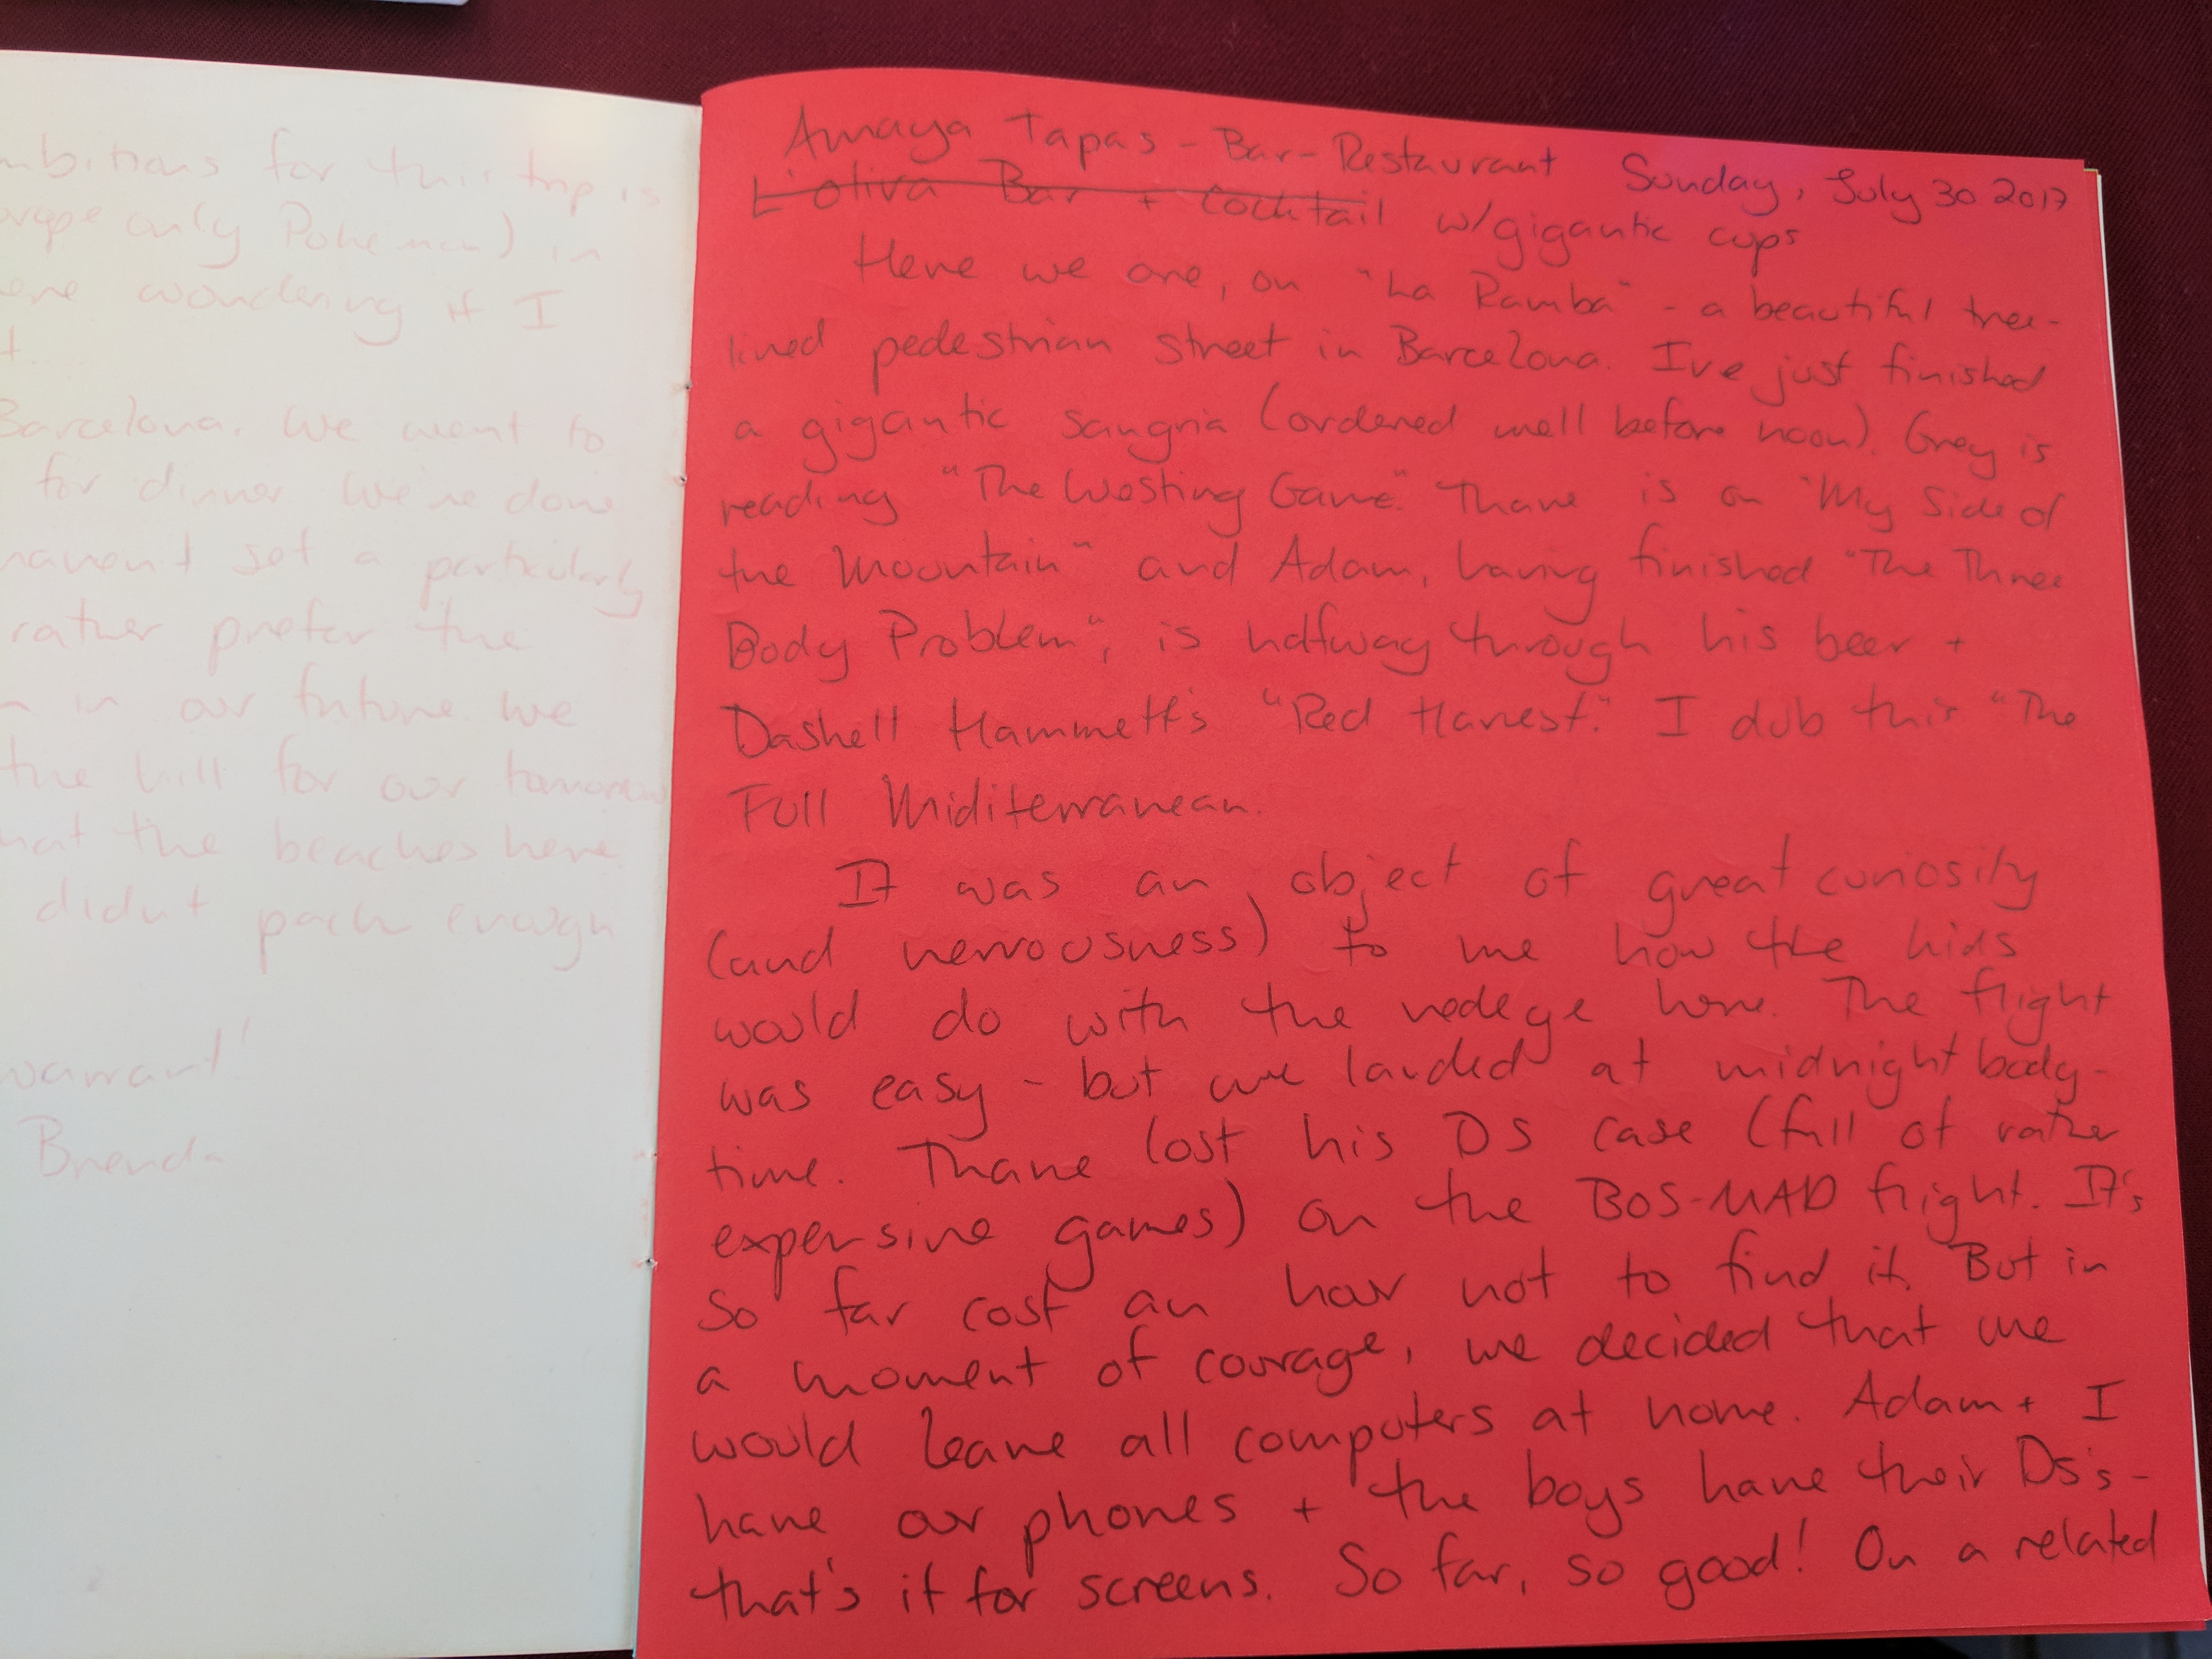 mbitions for this trip is
only Pokemon) in
wondering if I
t...
Barcelona. We went to
for dinner. We've done
havent set a particularly
rather prefer the
in our future. We
the bill for our tomorrow
hat the beaches here
didnt pack enough
warrant!
Brenda
Amaya Tapas - Bar - Restaurant Sunday, July 30 2017
L'oliva Bar + Cocktail w/gigantic cups
Here we are, on "La Rambla" - a beautiful tree-
lined pedestrian street in Barcelona. I've just finished
a gigantic sangria (ordered well before noon). Grey is
reading "The Westing Game." Thane is on "My Side of
the Mountain" and Adam, having finished "The Three
Body Problem", is halfway through his beer +
Dashell Hammett's "Red Harvest." I dub this "The
Full Miditerranean.
It was an object of great curiosity
(and nervousness) to me how the kids
would do with the redeye here. The flight
was easy - but we landed at midnight body-
time. Thane lost his DS case (full of rather
expensive games) on the BOS-MAD flight. It's
so far cost an hour not to find it. But in
a moment of courage, we decided that we
would leave all computers at home. Adam + I
have our phones + the boys have their DS's -
that's it for screens. So far, so good! On a related